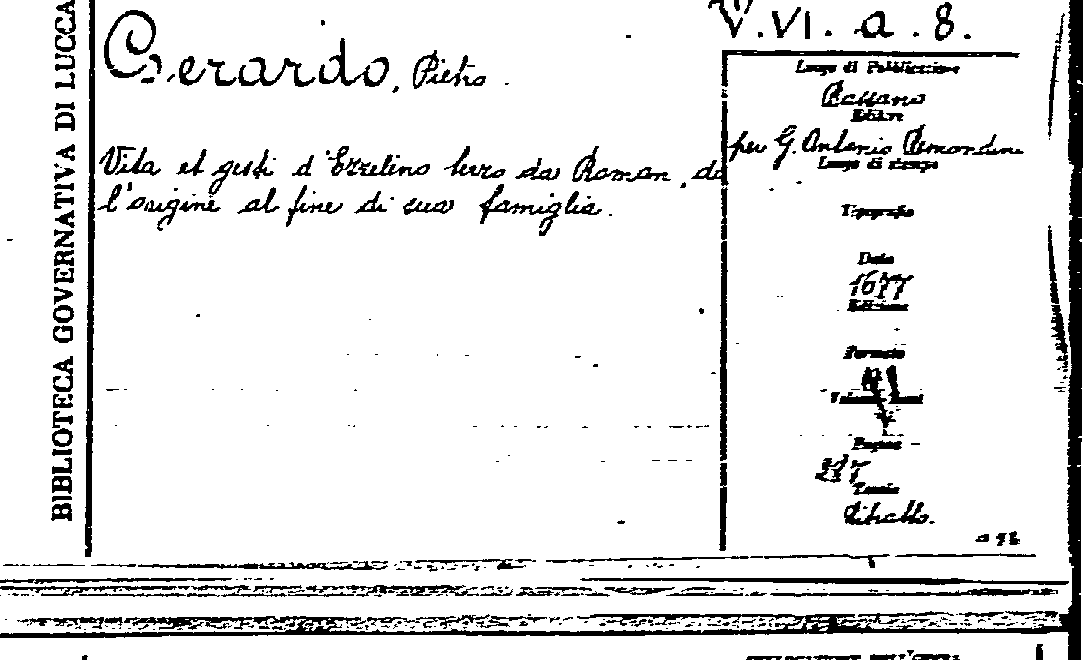 BIBLIOTECA GOVERNATIVA DI LUCCA
V.VI. a. 8.
Gerardo, Pietro.
Vita et gesti d'Ezzelino terzo da Roman, da
l'origine al fine di sua famiglia.
Luogo di Pubblicazione
Bassano
Editore
per G. Antonio Remondini
Luogo di stampa
Tipografia
Data
1677
Edizione
Formato
Pagine
Tavole
Ritratto.